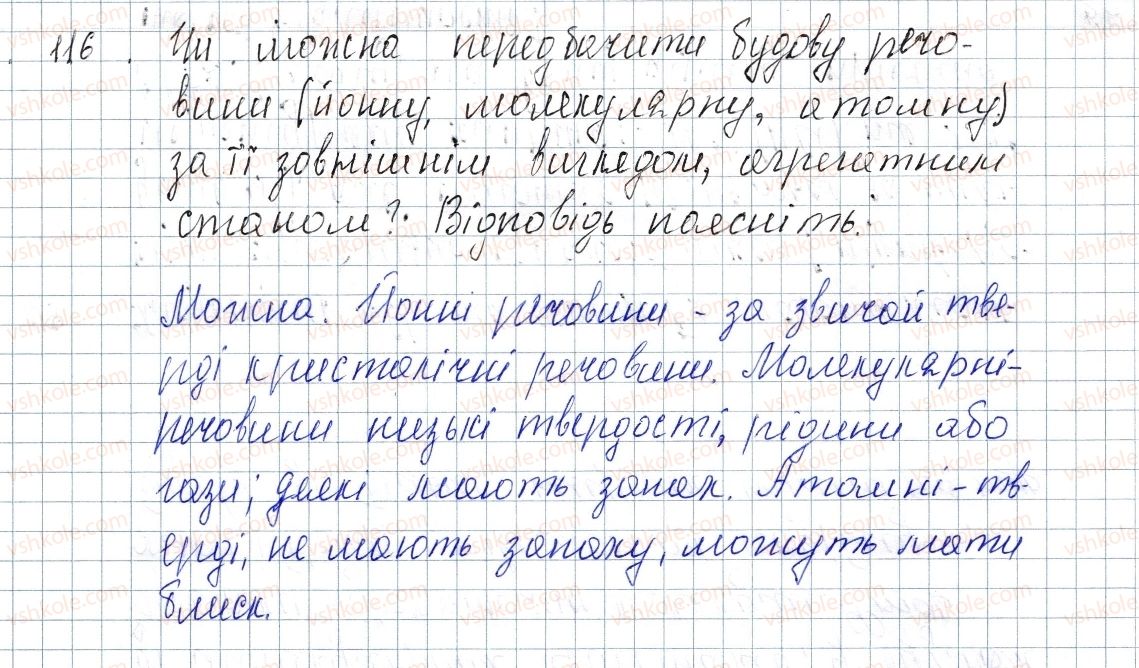 116. Чи можна передбачити будову речо-
вини (йонну, молекулярну, атомну)
за її зовнішнім виглядом, агрегатним
станом? Відповідь поясніть.
Можна. Йонні речовини - за звичай тве-
рді кристалічні речовини. Молекулярні-
речовини низькі твердості, рідини або
гази; деякі мають запах. Атомні - тв-
ерді, не мають запаху, можуть мати
блиск.